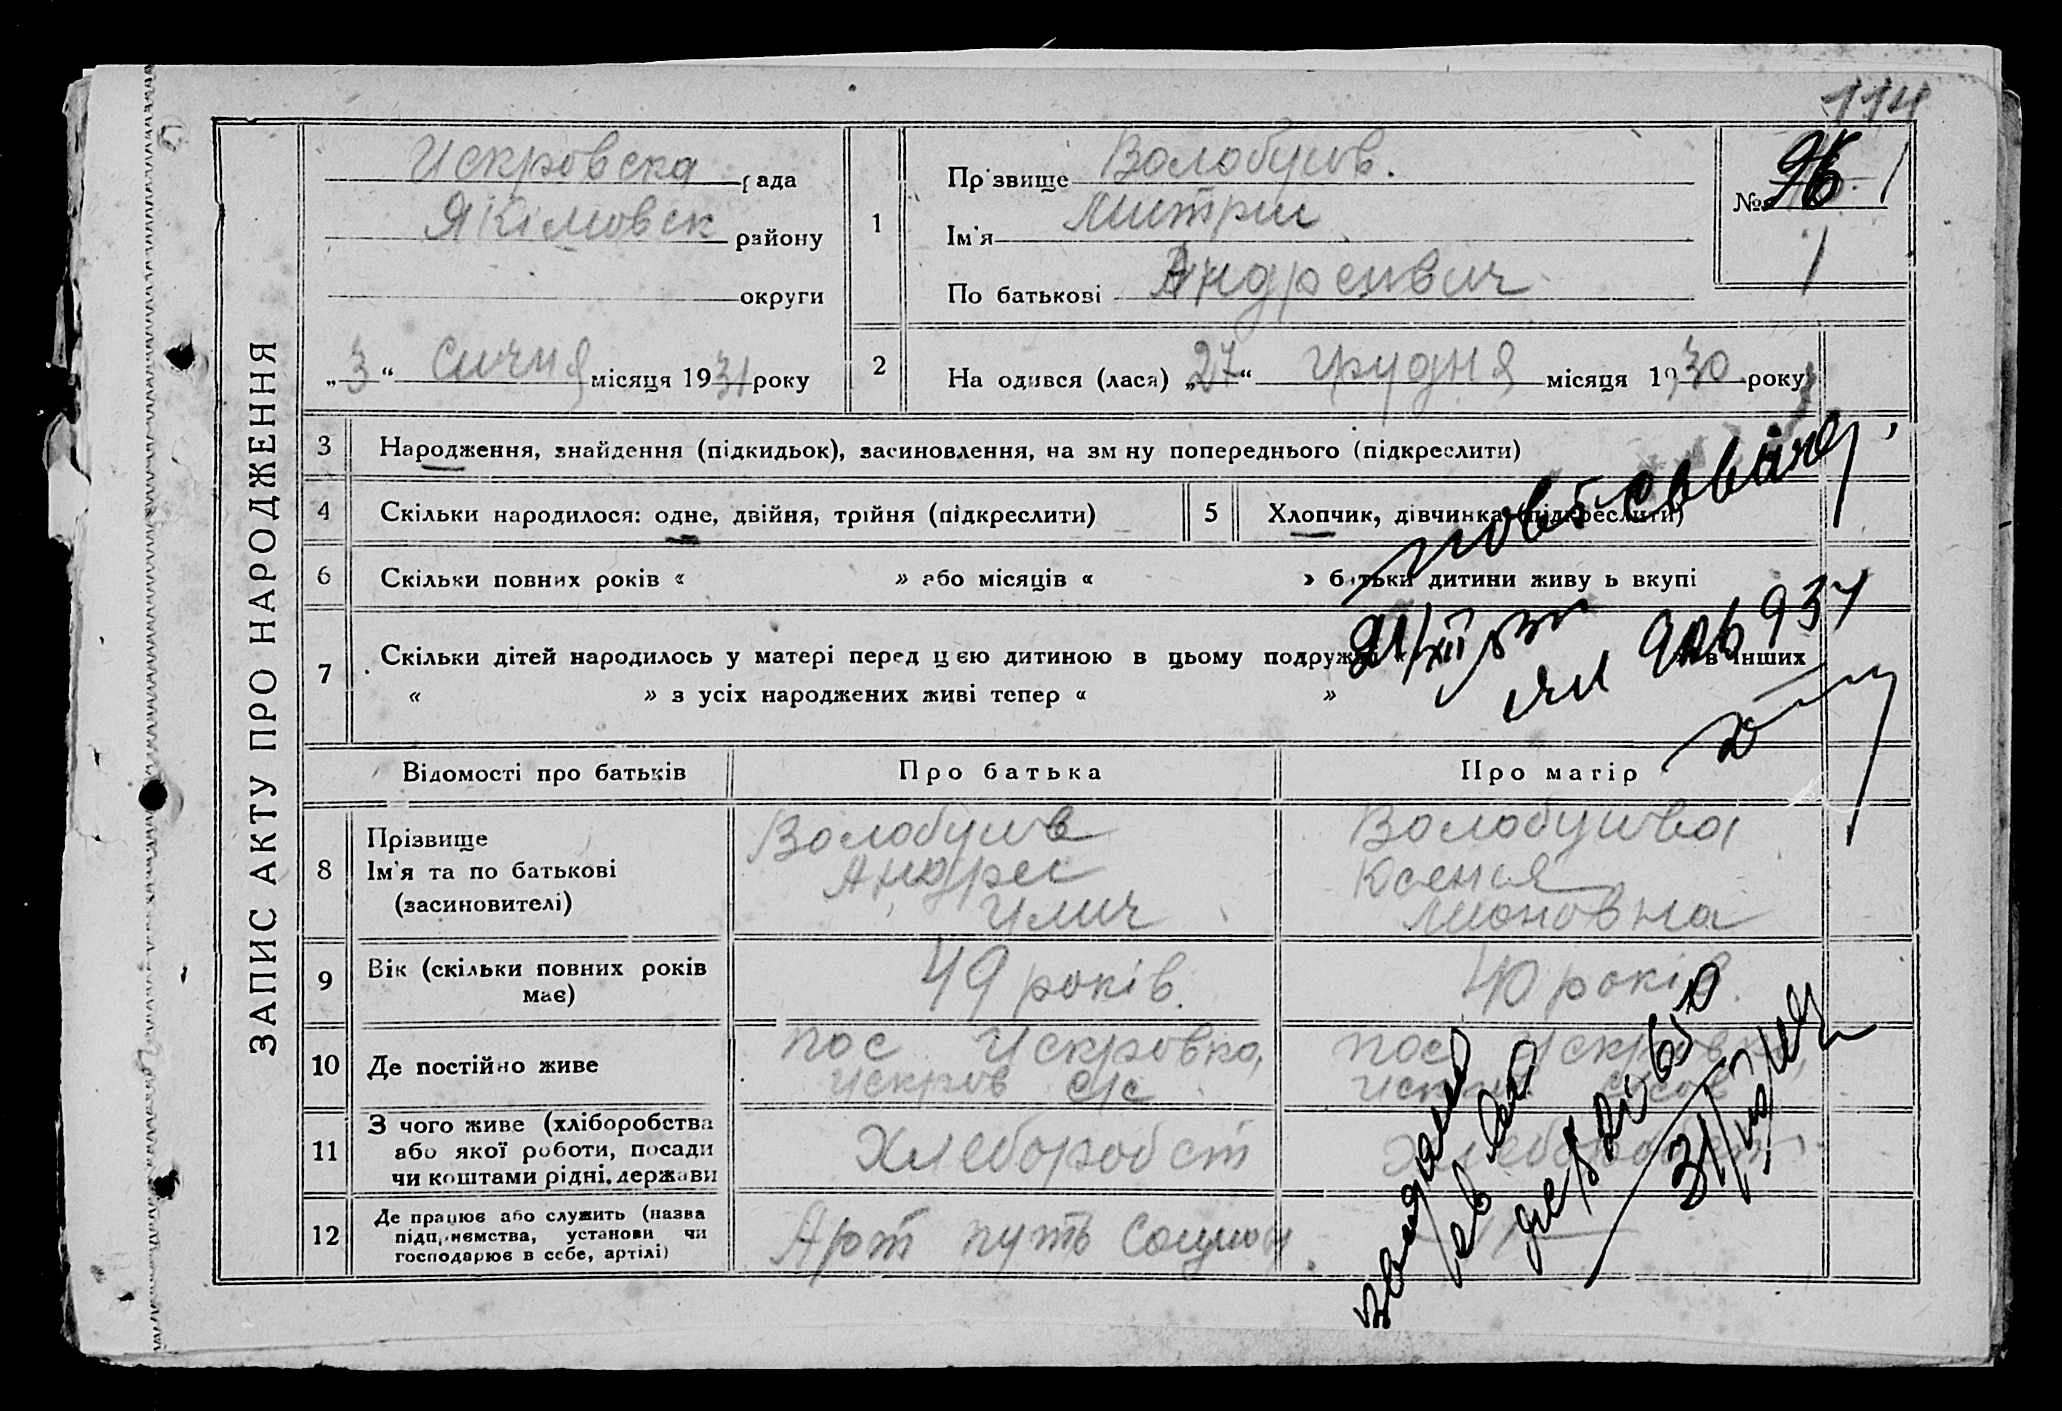 114
ЗАПИС АКТУ ПРО НАРОДЖЕННЯ
Искровска рада
Якімовск району
округи
„3“ сичня місяця 1931 року
1
Прізвище Волобуев.
Ім'я Митрии
По батькові Андреивич
№ 96
1
2
На одився (лася) „27“ грудня місяця 1930 року
3 Народження, знайдення (підкидьок), засиновлення, на зм ну попереднього (підкреслити)
4 Скільки народилося: одне, двійня, трійня (підкреслити)
5 Хлопчик, дівчинка (підкреслити)
6 Скільки повних років « » або місяців « » батьки дитини живу ь вкупі
7 Скільки дітей народилось у матері перед цією дитиною в цьому подруж в інших
« » з усіх народжених живі тепер « »
21/XII
926937
Відомості про батьків Про батька Про матір
8 Прізвище
Ім'я та по батькові
(засиновителі)
Волобуив
Андреи
Илич
Волобуива
Ксенья
9 Вік (скільки повних років має)
49 років.
40 років.
10 Де постійно живе
пос Искровка,
Искров с/с
пос Искровка,
11 З чого живе (хліборобства
або якої роботи, посади
чи коштами рідні, держави
Хлеборобст
Хлеборобст
12 Де працює або служить (назва
підприємства, установи чи
господарює в себе, артілі)
Арт путь Социал
31/